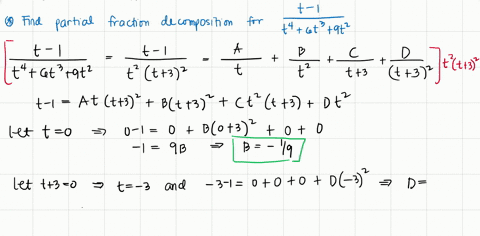 ⊛ Find partial fraction decomposition for (t-1)/(t⁴+6t³+9t²)
[ (t-1)/(t⁴+6t³+9t²) = (t-1)/(t²(t+3)²) = A/t + B/t² + C/(t+3) + D/(t+3)² ] t²(t+3)²
t-1 = At(t+3)² + B(t+3)² + Ct²(t+3) + Dt²
let t=0 ⇒ 0-1 = 0 + B(0+3)² + 0 + 0
-1 = 9B ⇒ B = -1/9
let t+3=0 ⇒ t=-3 and -3-1 = 0+0+0+D(-3)² ⇒ D=